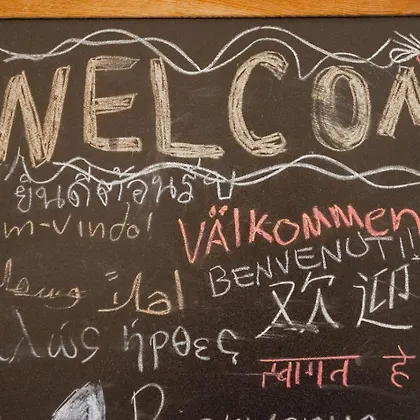 WELCOM
ยินดีต้อนรับ
m-vindo!
VÄLKOMMEN
BENVENUTI
أهلا
欢迎
αλώς ήρθες
स्वागत है